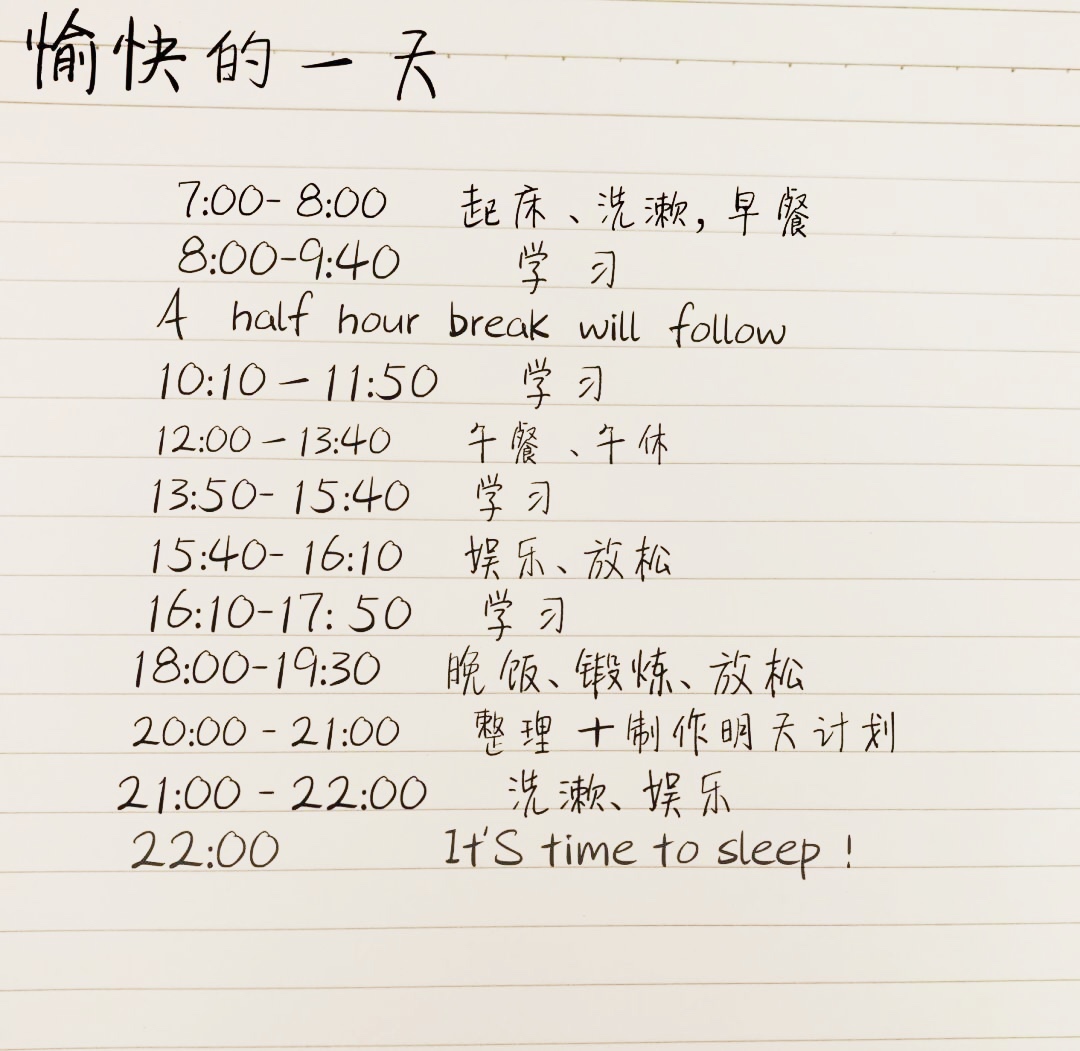 愉快的一天
7:00-8:00 起床、洗漱,早餐
8:00-9:40 学习
A half hour break will follow
10:10-11:50 学习
12:00-13:40 午餐、午休
13:50-15:40 学习
15:40-16:10 娱乐、放松
16:10-17:50 学习
18:00-19:30 晚饭、锻炼、放松
20:00-21:00 整理+制作明天计划
21:00-22:00 洗漱、娱乐
22:00 It'S time to sleep!